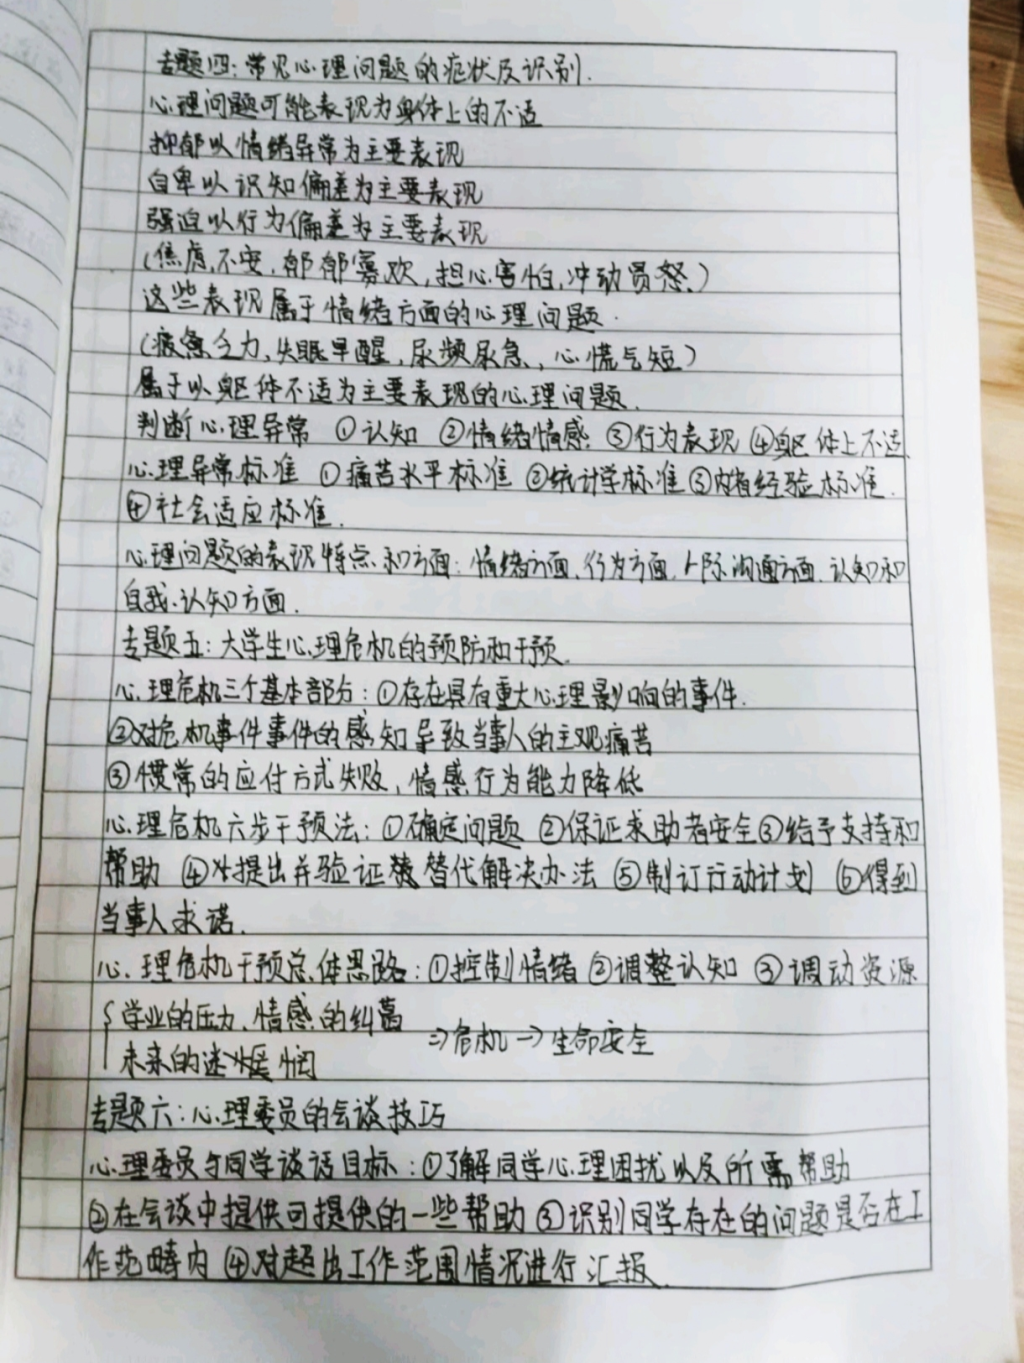 专题四:常见心理问题的症状及识别.
心理问题可能表现为身体上的不适
抑郁以情绪异常为主要表现
自卑以识知偏差为主要表现
强迫以行为偏差为主要表现
(焦虑,不安,郁郁寡欢,担心害怕,冲动易怒)
这些表现属于情绪方面的心理问题.
(疲惫乏力,失眠早醒,尿频尿急,心慌气短)
属于以躯体不适为主要表现的心理问题.
判断心理异常 ①认知 ②情绪情感 ③行为表现 ④躯体上不适.
心理异常标准 ①痛苦水平标准 ②统计学标准 ③内省经验标准.
④社会适应标准.
心理问题的表现特点和方面:情绪方面、行为方面、人际沟通方面、认知和
自我认知方面.
专题五:大学生心理危机的预防和干预.
心理危机三个基本部分:①存在具有重大心理影响的事件.
②对危机事件事件的感知导致当事人的主观痛苦
③惯常的应付方式失败,情感行为能力降低
心理危机六步干预法:①确定问题 ②保证求助者安全③给予支持和
帮助 ④提出并验证替代解决办法 ⑤制订行动计划 ⑥得到
当事人承诺.
心理危机干预总体思路:①控制情绪 ②调整认知 ③调动资源
{学业的压力、情感的纠葛
未来的迷 恼 ⇒危机→生命安全
专题六:心理委员的会谈技巧
心理委员与同学谈话目标:①了解同学心理困扰以及所需帮助
②在会谈中提供可提供的一些帮助 ③识别同学存在的问题是否在工
作范畴内 ④对超出工作范围情况进行汇报.